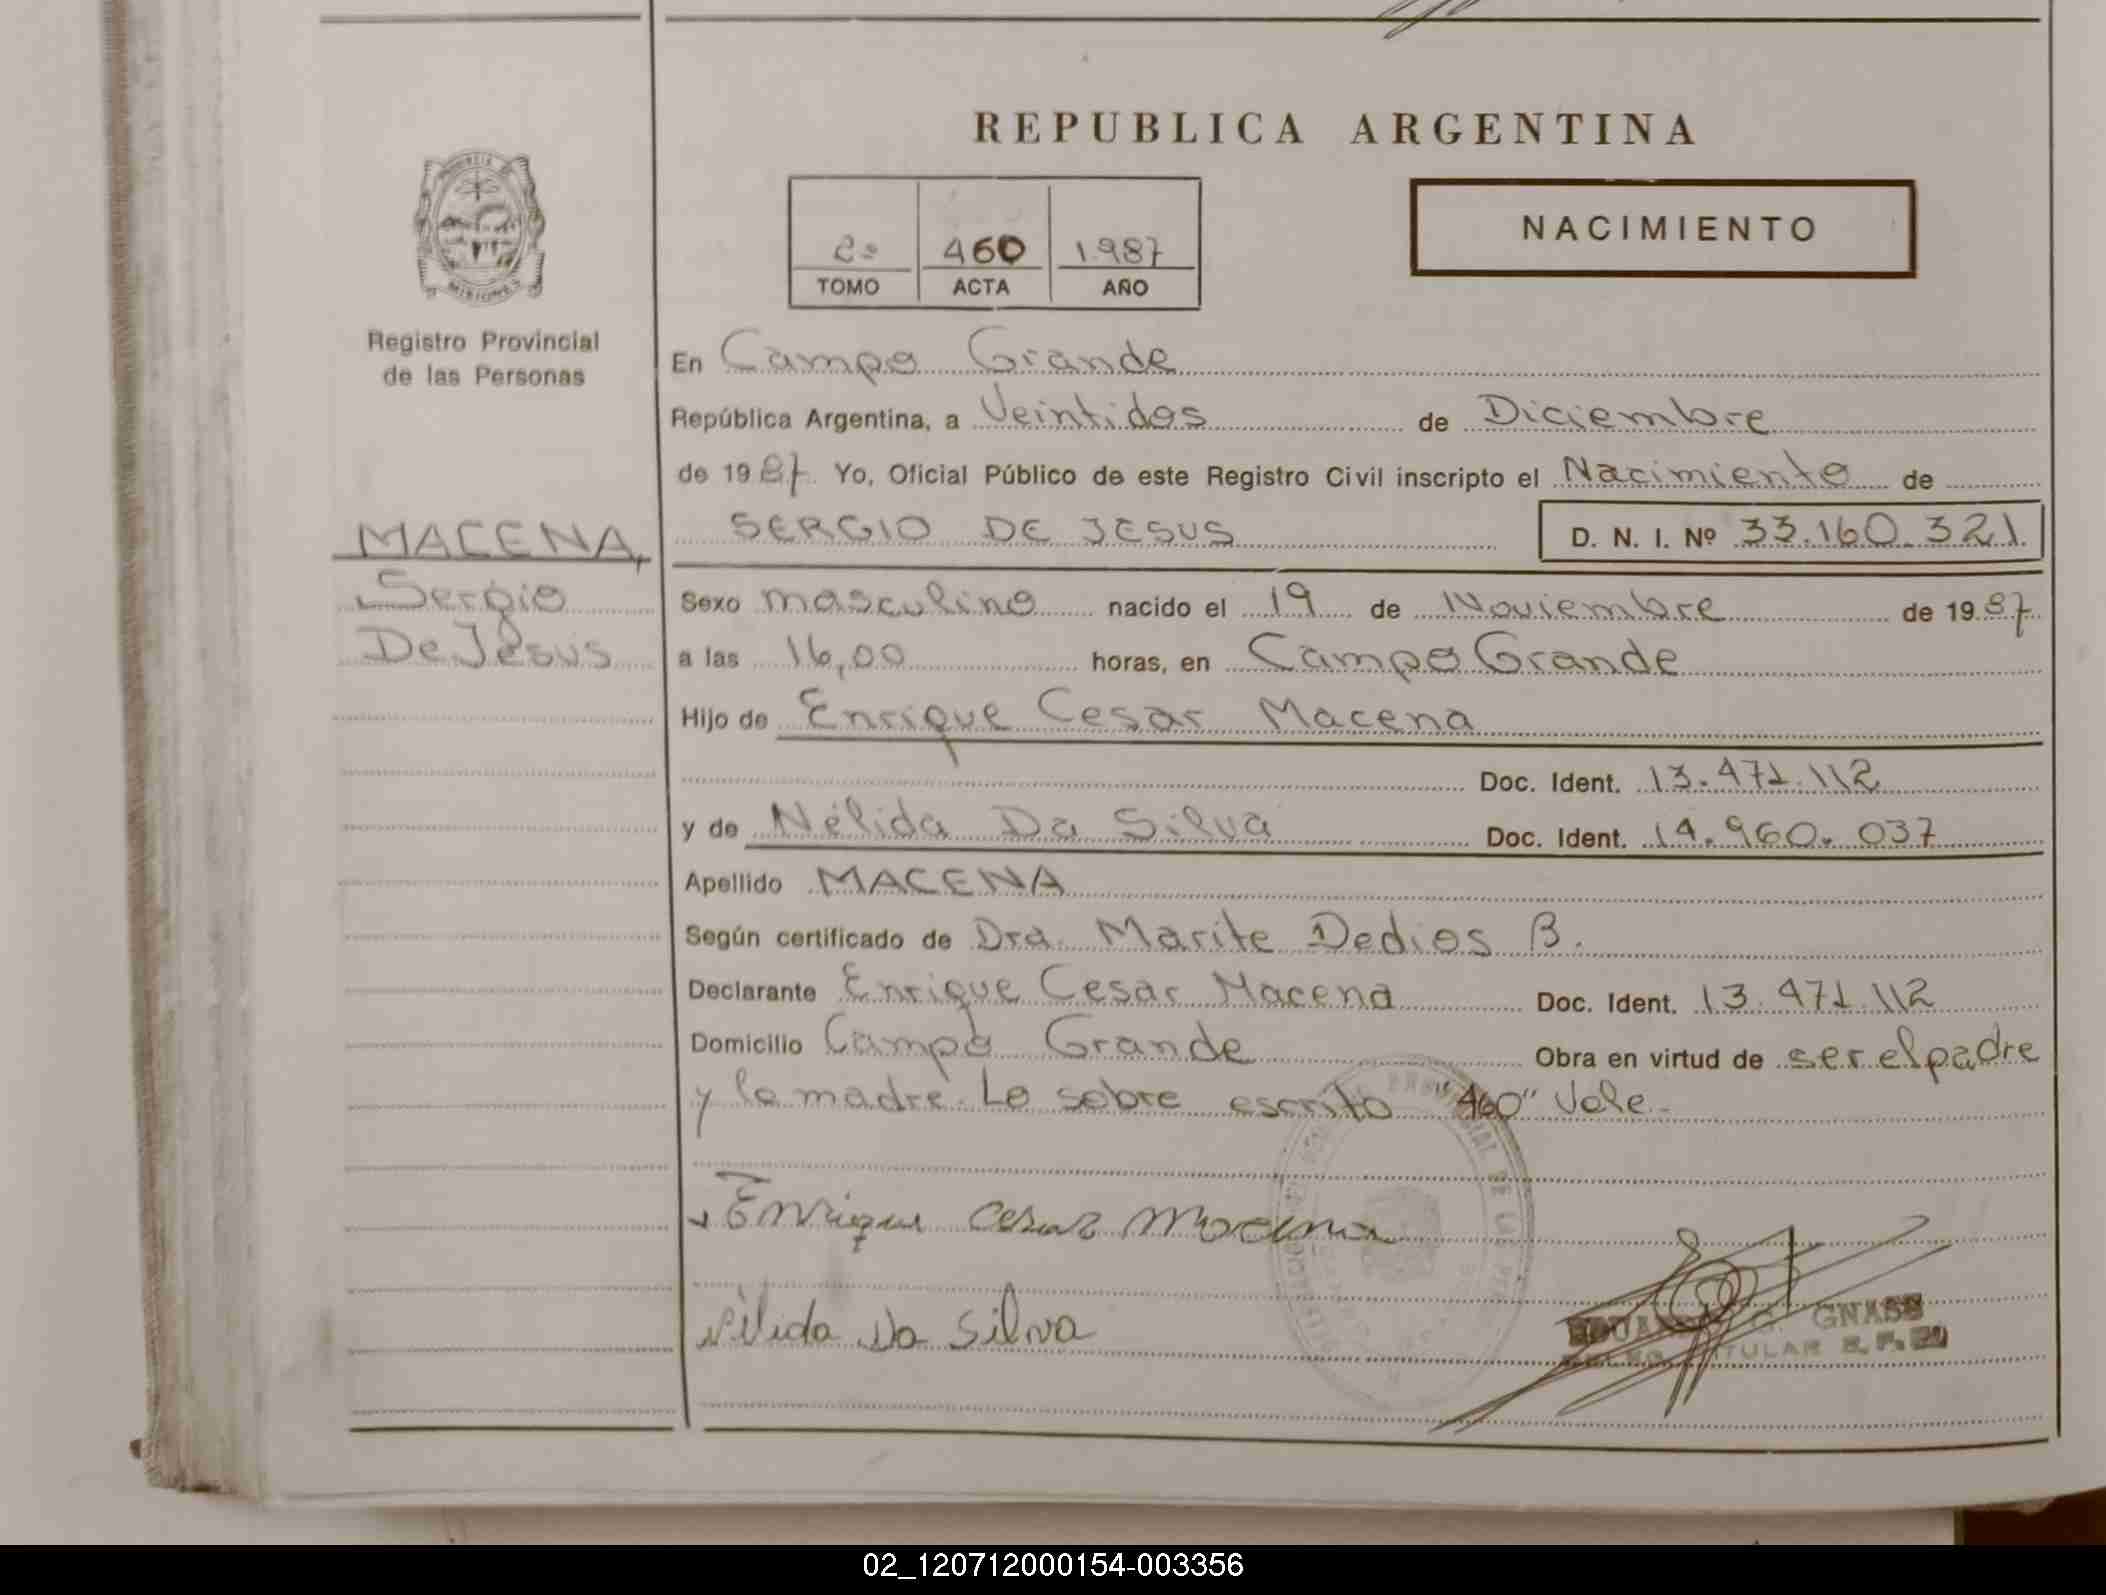 REPUBLICA ARGENTINA
NACIMIENTO
2º 460 1.987
TOMO ACTA AÑO
PROVINCIA DE
MISIONES
Registro Provincial
de las Personas
MACENA,
Sergio
De Jesus
En Campo Grande
República Argentina, a Veintidos de Diciembre
de 1987. Yo, Oficial Público de este Registro Civil inscripto el Nacimiento de
SERGIO DE JESUS D. N. I. Nº 33.160.321.
Sexo masculino nacido el 19 de Noviembre de 1987
a las 16,00 horas, en Campo Grande
Hijo de Enrique Cesar Macena
Doc. Ident. 13.471.112
y de Nélida Da Silva Doc. Ident. 14.960.037
Apellido MACENA
Según certificado de Dra. Marite Dedios B.
Declarante Enrique Cesar Macena Doc. Ident. 13.471.112
Domicilio Campo Grande Obra en virtud de ser el padre
y la madre. Lo sobre escrito "460" Vale.-
Enrique Cesar Macena
Nélida Da Silva
EDUARDO G. GNASS
TITULAR
02_120712000154-003356